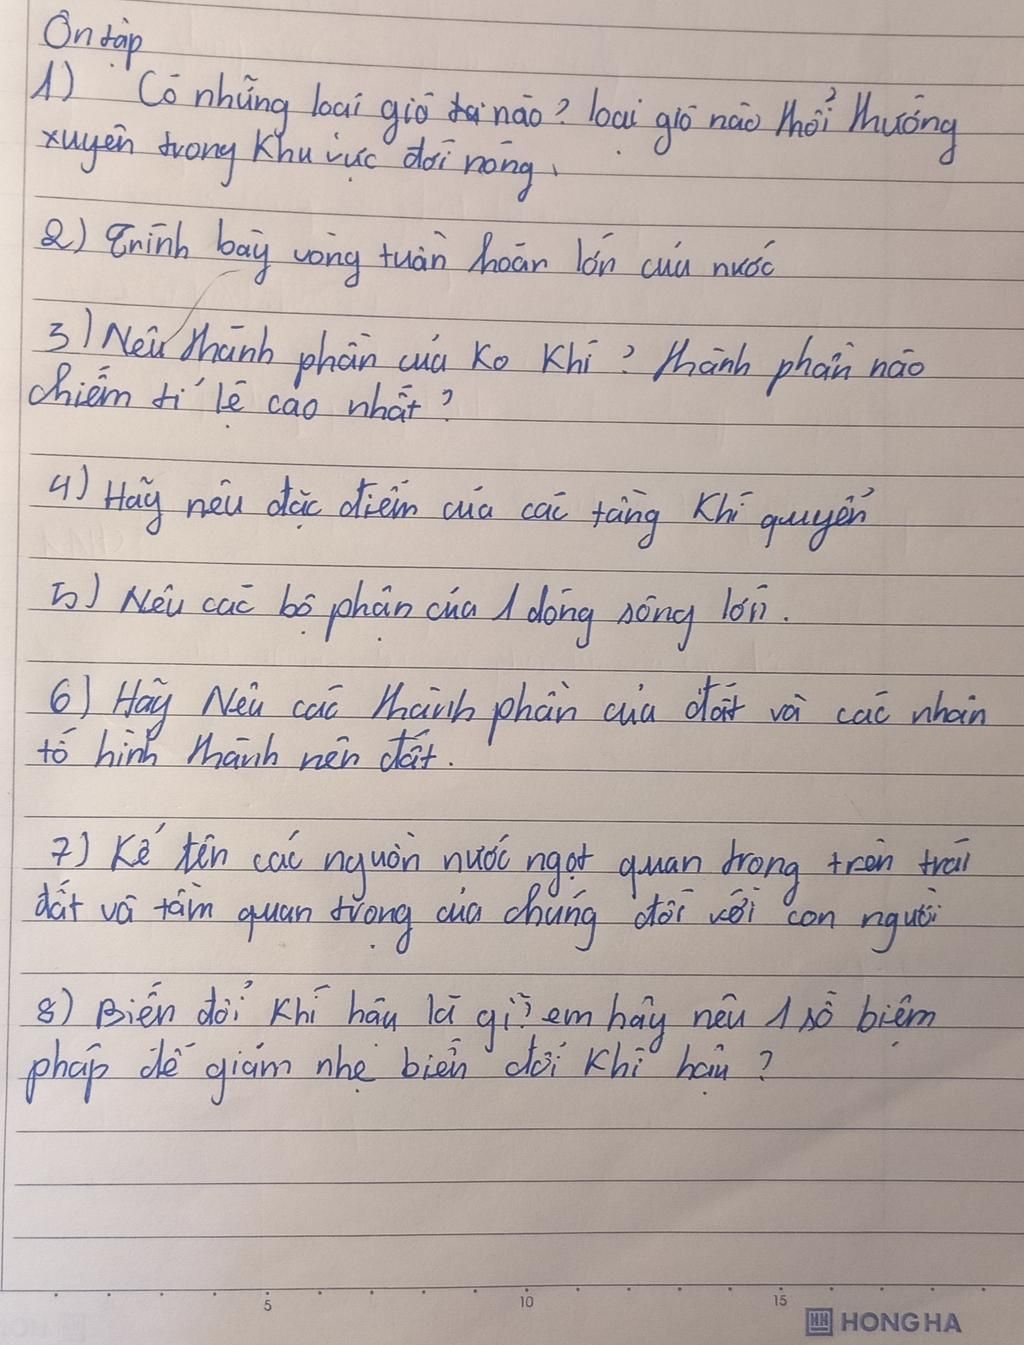 Ôn tập
1) Có những loại gió nào? loại gió nào thổi thường
xuyên trong khu vực đới nóng.
2) Trình bày vòng tuần hoàn lớn của nước
3) Nêu thành phần của ko khí? thành phần nào
chiếm tỉ lệ cao nhất?
4) Hãy nêu đặc điểm của các tầng khí quyển
5) Nêu các bộ phận của 1 dòng sông lớn.
6) Hãy Nêu các thành phần của đất và các nhân
tố hình thành nên đất.
7) Kể tên các nguồn nước ngọt quan trọng trên trái
đất và tầm quan trọng của chúng đối với con người
8) Biến đổi khí hậu là gì? em hãy nêu 1 số biệm
pháp để giảm nhẹ biến đổi khí hậu?
5 10 15
HH HONG HA